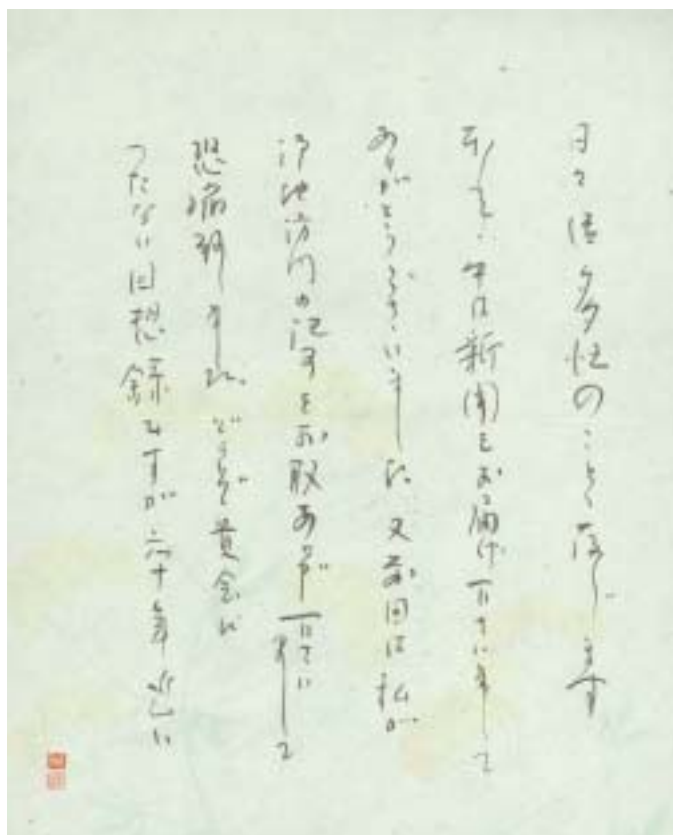 日々御多忙のことと存じます
新聞をお届け下さいまして
ありがとうございました。又前回は私が
訪問の記事をお取あげ下さいまして
恐縮致しました。どうぞ貴会の
つたない回想録ですが六十年近い